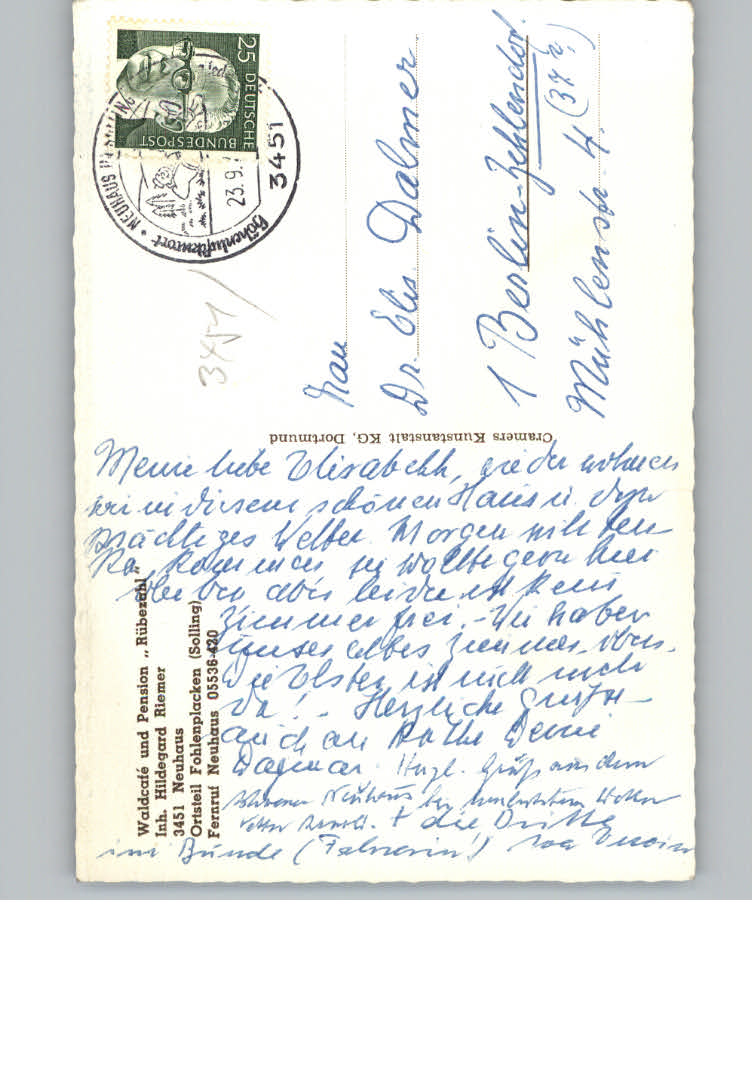 25 DEUTSCHE
BUNDESPOST
NEUHAUS IM SOLLING
Höhenluftkurort
23.9.
3451
3451
Frau
Dr. Elis. Dalmer
1 Berlin-Zehlendorf
(37)
Mühlenstr. 4.
Cramers Kunstanstalt KG, Dortmund
Waldcafé und Pension „Rübezahl"
Inh. Hildegard Riemer
3451 Neuhaus
Ortsteil Fohlenplacken (Solling)
Fernruf Neuhaus 05536-420
Meine liebe Elisabeth, wieder wohnen
wir in diesem schönen Haus u.
prächtiges Wetter. Morgen will
kommen, sie wollte gern hier
bleiben aber leider ist kein
Zimmer frei. - Wir haben
unser altes Zimmer.
Die ist nicht mehr
da! - Herzliche Grüße
auch an Käthe Deine
Dagmar. Herzl. Gruß aus dem
schönen Neuhaus bei Wetter
Vetter + die Dritte
im Bunde (Fahrerin!)